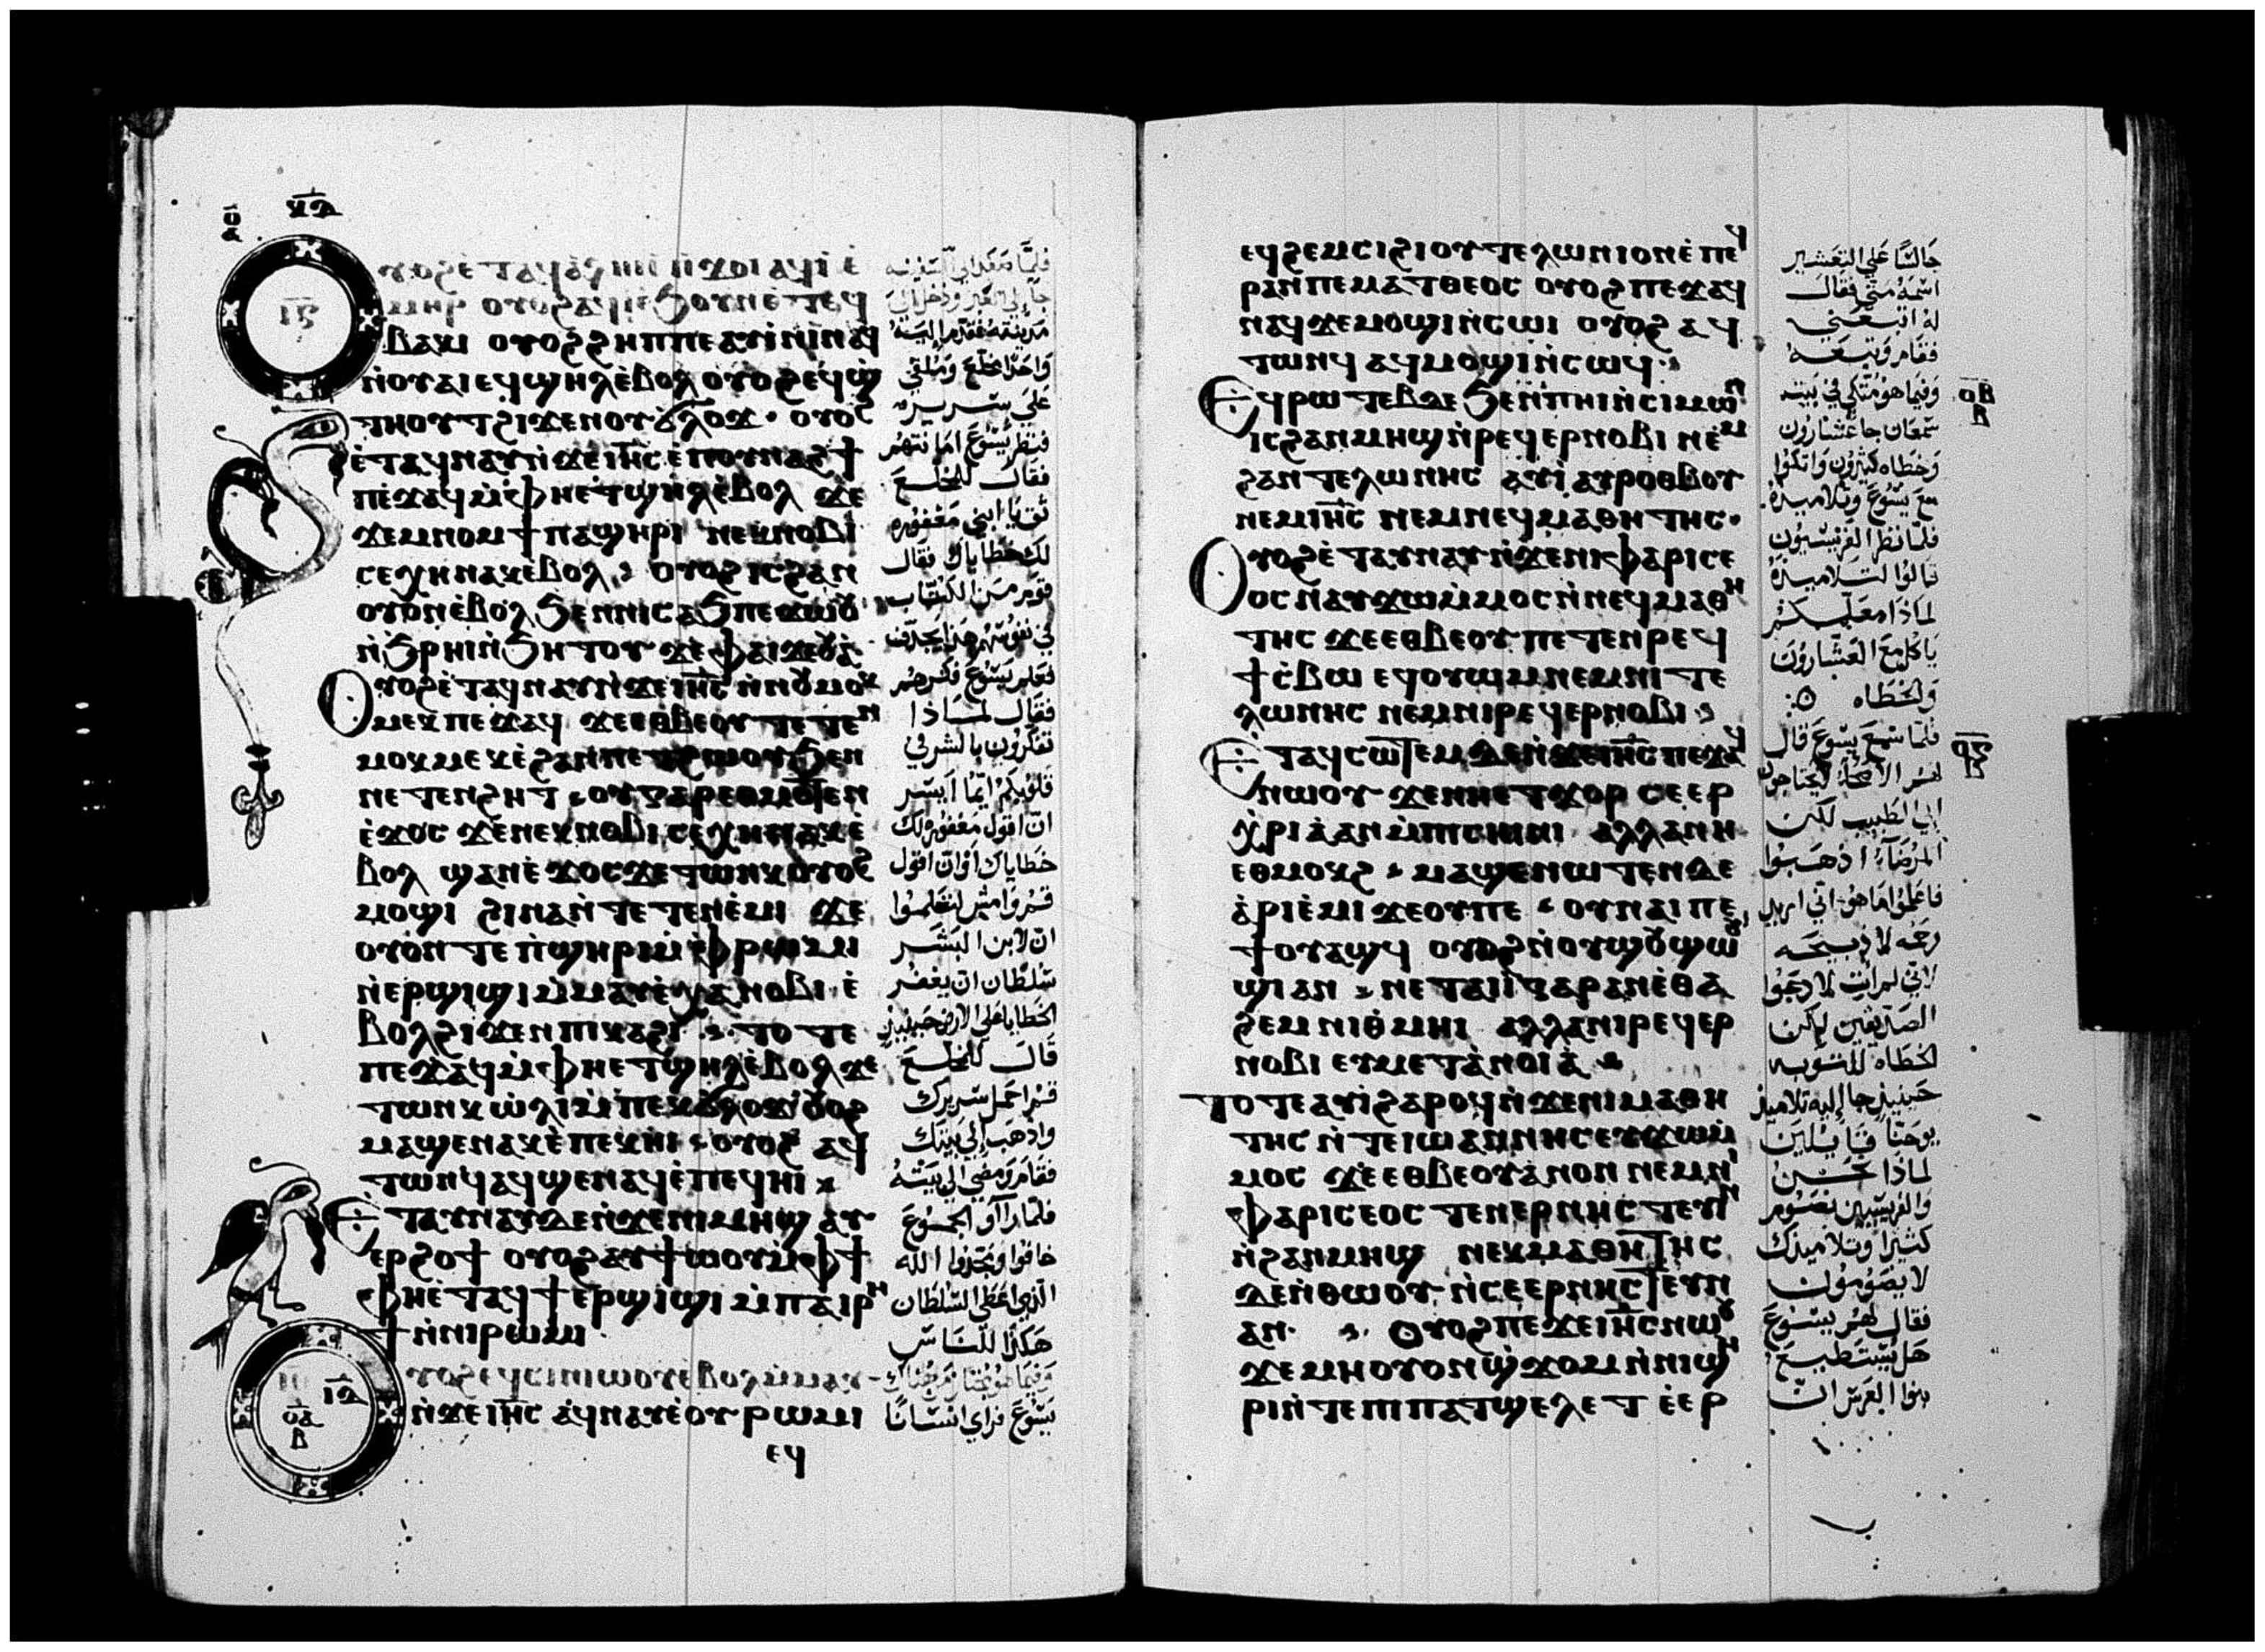 ⲟⲩⲟϩ ⲉ̀ⲧⲁϥⲁ̀ⲗⲏⲓ ⲡ̀ϫⲟⲓ ⲁϥⲓ̀ ⲉ̀
ⲙⲏⲣ ⲟⲩⲟϩ ⲁϥⲓ̀ ⲉ̀ϧⲟⲩⲛ ⲉ̀ⲧⲉϥ
ⲃⲁⲕⲓ ⲟⲩⲟϩ ϩⲏⲡⲡⲉ ⲁⲩⲓ̀ⲛⲓ ⲛⲁϥ
ⲛ̀ⲟⲩⲁⲓ ⲉϥϣⲏⲗ ⲉ̀ⲃⲟⲗ ⲟⲩⲟϩ ⲉϥϣ
ⲧⲏⲟⲩⲧ ϩⲓϫⲉⲛ ⲟⲩϭⲗⲟϫ · ⲟⲩⲟϩ
ⲉ̀ⲧⲁϥⲛⲁⲩ ⲛ̀ϫⲉ ⲓⲏ̅ⲥ ⲉ̀ⲡⲟⲩⲛⲁϩϯ
ⲡⲉϫⲁϥ ⲙ̀ⲫⲏ ⲉⲧϣⲏⲗ ⲉ̀ⲃⲟⲗ ϫⲉ
ϫⲉⲙⲛⲟⲙϯ ⲡⲁϣⲏⲣⲓ ⲛⲉⲕⲛⲟⲃⲓ
ⲥⲉⲭⲏ ⲛⲁⲕ ⲉⲃⲟⲗ ⲟⲩⲟϩ ⲓⲥ ϩⲁⲛ
ⲟⲩⲟⲛ ⲉ̀ⲃⲟⲗ ϧⲉⲛ ⲛⲓⲥⲁϧ ⲡⲉϫⲱⲟⲩ
ⲛ̀ϧⲣⲏⲓ ⲛ̀ϧⲏⲧⲟⲩ ϫⲉ ⲫⲁⲓ ϫⲉⲟⲩⲁ̀
ⲟⲩⲟϩ ⲉ̀ⲧⲁϥⲛⲁⲩ ⲛ̀ϫⲉ ⲓⲏ̅ⲥ ⲛ̀ⲛⲟⲩⲙⲟⲕ
ⲙⲉⲕ ⲡⲉϫⲁϥ ϫⲉ ⲉⲑⲃⲉⲟⲩ ⲧⲉⲧⲉⲛ
ⲙⲟⲕⲙⲉⲕ ⲉ̀ϩⲁⲛⲡⲉⲧϩⲱⲟⲩ ϧⲉⲛ
ⲛⲉⲧⲉⲛϩⲏⲧ ⲟⲩ ⲅⲁⲣ ⲉⲑⲙⲟⲧⲉⲛ
ⲉ̀ϫⲟⲥ ϫⲉ ⲛⲉⲕⲛⲟⲃⲓ ⲥⲉⲭⲏ ⲛⲁⲕ ⲉ̀
ⲃⲟⲗ ϣⲁⲛ ⲉ̀ϫⲟⲥ ϫⲉ ⲧⲱⲛⲕ ⲟⲩⲟϩ
ⲙⲟϣⲓ ϩⲓⲛⲁ ⲛ̀ⲧⲉⲧⲉⲛⲉ̀ⲙⲓ ϫⲉ
ⲟⲩⲟⲛⲧⲉ ⲡ̀ϣⲏⲣⲓ ⲙ̀ⲫⲣⲱⲙⲓ
ⲛ̀ⲉⲣϣⲓϣⲓ ⲙ̀ⲙⲁⲩ ⲉ̀ⲭⲁ ⲛⲟⲃⲓ ⲉ̀
ⲃⲟⲗ ϩⲓϫⲉⲛ ⲡⲓⲕⲁϩⲓ ⲧⲟⲧⲉ
ⲡⲉϫⲁϥ ⲙ̀ⲫⲏ ⲉⲧϣⲏⲗ ⲉ̀ⲃⲟⲗ ϫⲉ
ⲧⲱⲛⲕ ⲱ̀ⲗⲓ ⲙ̀ⲡⲉⲕϭⲗⲟϫ ⲟⲩⲟϩ
ⲙⲁϣⲉⲛⲁⲕ ⲉ̀ⲡⲉⲕⲏⲓ ⲟⲩⲟϩ ⲁϥ
ⲧⲱⲛϥ ⲁϥϣⲉⲛⲁϥ ⲉ̀ⲡⲉϥⲏⲓ
ⲉⲧⲁⲩⲛⲁⲩ ⲇⲉ ⲛ̀ϫⲉ ⲛⲓⲙⲏϣ ⲁⲩ
ⲉⲣϩⲟϯ ⲟⲩⲟϩ ⲁⲩϯⲱⲟⲩ ⲙ̀ⲫϯ
ⲫⲏ ⲉ̀ⲧⲁϥϯ ⲉⲣϣⲓϣⲓ ⲙ̀ⲡⲁⲓⲣⲏ
ϯ ⲛ̀ⲛⲓⲣⲱⲙⲓ
ⲟⲩⲟϩ ⲉϥⲥⲓⲛⲓⲱⲟⲩ ⲉ̀ⲃⲟⲗ ⲙ̀ⲙⲁⲩ
ⲛ̀ϫⲉ ⲓⲏ̅ⲥ ⲁϥⲛⲁⲩ ⲉ̀ⲟⲩⲣⲱⲙⲓ
ⲉϥ
جا إلى العبر ودخل إلى
مدينته فقدموا إليه
واحدا مخلع وملقى
على سريره
فنظر يسوع امانتهم
فقال للمخلع
ثق يا ابني مغفوره
لك خطاياك فقال
قوم من الكتاب
في نفوسهم هذا يجدف
فعلم يسوع فكرهم
فقال لماذا
تفكرون بالشر في
قلوبكم ايما ايسر
ان اقول مغفوره لك
خطاياك او ان اقول
قم وامش لتعلموا
ان لابن البشر
سلطان ان يغفر
الخطايا على الارض حينيذ
قال للمخلع
قم احمل سريرك
واذهب إلى بيتك
فقام ومضى الى بيته
فلما راأو الجموع
خافوا ومجدوا الله
الذي اعطى السلطان
هكذا للناس
يسوع فراي انسانا
ⲉϥϩⲉⲙⲥⲓ ϩⲓ ⲟⲩⲧⲉⲗⲱⲛⲓⲟⲛ ⲉ̀ⲡⲉϥ
ⲣⲁⲛ ⲡⲉ ⲙⲁⲧⲑⲉⲟⲥ ⲟⲩⲟϩ ⲡⲉϫⲁϥ
ⲛⲁϥ ϫⲉ ⲙⲟϣⲓ ⲛ̀ⲥⲱⲓ ⲟⲩⲟϩ ⲁϥ
ⲧⲱⲛϥ ⲁϥⲙⲟϣⲓ ⲛ̀ⲥⲱϥ
ⲉϥⲣⲱⲧⲉⲃ ⲇⲉ ϧⲉⲛ ⲡⲏⲓ ⲛ̀ⲥⲓⲙⲱⲛ
ⲓⲥ ϩⲁⲛⲙⲏϣ ⲛ̀ⲣⲉϥⲉⲣⲛⲟⲃⲓ ⲛⲉⲙ
ϩⲁⲛⲧⲉⲗⲱⲛⲏⲥ ⲁⲩⲓ̀ ⲁⲩⲣⲟⲑⲃⲟⲩ
ⲛⲉⲙ ⲓⲏ̅ⲥ ⲛⲉⲙ ⲛⲉϥⲙⲁⲑⲏⲧⲏⲥ ·
ⲟⲩⲟϩ ⲉ̀ⲧⲁⲩⲛⲁⲩ ⲛ̀ϫⲉ ⲛⲓⲫⲁⲣⲓⲥⲉ
ⲟⲥ ⲛⲁⲩϫⲱ ⲙ̀ⲙⲟⲥ ⲛ̀ⲛⲉϥⲙⲁⲑⲏ
ⲧⲏⲥ ϫⲉ ⲉⲑⲃⲉⲟⲩ ⲡⲉⲧⲉⲛⲣⲉϥ
ϯⲥ̀ⲃⲱ ⲉϥⲟⲩⲱⲙ ⲛⲉⲙ ⲛⲓⲧⲉ
ⲗⲱⲛⲏⲥ ⲛⲉⲙ ⲛⲓⲣⲉϥⲉⲣⲛⲟⲃⲓ
ⲉⲧⲁϥⲥⲱⲧⲉⲙ ⲇⲉ ⲛ̀ϫⲉ ⲓⲏ̅ⲥ ⲡⲉϫⲁϥ
ⲛⲱⲟⲩ ϫⲉ ⲛⲏ ⲉⲧϫⲟⲣ ⲥⲉⲉⲣ
ⲭⲣⲓⲁ̀ ⲁⲛ ⲙ̀ⲡⲓⲥⲏⲓⲛⲓ ⲁⲗⲗⲁ ⲛⲏ
ⲉⲑⲙⲟⲕϩ ⲙⲁϣⲉⲛⲱⲧⲉⲛ ⲇⲉ
ⲁ̀ⲣⲓⲉ̀ⲙⲓ ϫⲉ ⲟⲩ ⲡⲉ ⲟⲩⲛⲁⲓ ⲡⲉ
ϯⲟⲩⲁϣϥ ⲟⲩⲟϩ ⲛ̀ⲟⲩϣⲟⲩϣⲱⲟⲩ
ϣⲓ ⲁⲛ ⲛⲉⲧⲁⲓⲓ̀ ⲅⲁⲣ ⲁⲛ ⲉ̀ⲑⲁ
ϩⲉⲙ ⲛⲓⲑⲙⲏⲓ ⲁⲗⲗⲁ ⲛⲓⲣⲉϥⲉⲣ
ⲛⲟⲃⲓ ⲉⲩⲙⲉⲧⲁⲛⲟⲓⲁ̀
ⲧⲟⲧⲉ ⲁⲩⲓ̀ ϩⲁⲣⲟϥ ⲛ̀ϫⲉ ⲛⲓⲙⲁⲑⲏ
ⲧⲏⲥ ⲛ̀ⲧⲉ ⲓⲱⲁⲛⲛⲏⲥ ⲉⲩϫⲱ ⲙ̀
ⲙⲟⲥ ϫⲉ ⲉⲑⲃⲉⲟⲩ ⲁⲛⲟⲛ ⲛⲉⲙ ⲛⲓ
ⲫⲁⲣⲓⲥⲉⲟⲥ ⲧⲉⲛⲉⲣⲛⲏⲥⲧⲉⲩⲓⲛ
ⲛ̀ϩⲁⲛⲙⲏϣ ⲛⲉⲕⲙⲁⲑⲏⲧⲏⲥ
ⲇⲉ ⲛ̀ⲑⲱⲟⲩ ⲛ̀ⲥⲉⲉⲣⲛⲏⲥⲧⲉⲩⲓⲛ
ⲁⲛ · ⲟⲩⲟϩ ⲡⲉϫⲉ ⲓⲏ̅ⲥ ⲛⲱⲟⲩ
ϫⲉ ⲙⲏ ⲟⲩⲟⲛ ϣϫⲟⲙ ⲛ̀ⲛⲓϣⲏ
ⲣⲓ ⲛ̀ⲧⲉ ⲡⲓⲡⲁⲧϣⲉⲗⲉⲧ ⲉ̀ⲉⲣ
جالسا على التعشير
اسمه متى فقال
له اتبعني
فقام وتبعه
وفيما هو متكى في بيت
سمعان جا عشارون
وخطاه كثيرون واتكوا
مع يسوع وتلاميذه
فلما نظر الفريسيون
قالوا لتلاميذه
لماذا معلمكم
ياكل مع العشارون
والخطاه
فلما سمع يسوع قال
لهم الاصحاء لا يحتاجون
إلى الطبيب لكن
المرضاء اذهبوا
فاعلموا ما هو اني اريد
رحمه لا ذبيحه
لاني لم ات لادعوا
الصديقين لكن
الخطاه للتوبه
حينيذ جا إليه تلاميذ
يوحنا قايلين
لماذا نحن
والفريسيين نصوم
كثيرا وتلاميذك
لا يصومون
فقال لهم يسوع
هل يستطيع
بنوا العرس ان